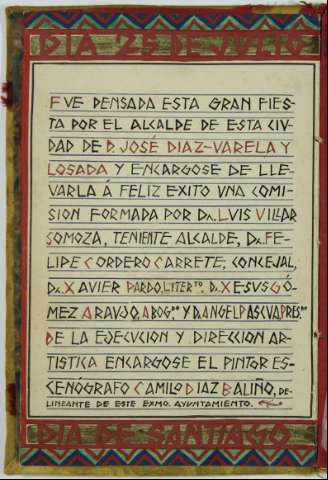 DIA 25 DE JULIO
FVE PENSADA ESTA GRAN FIES-
TA POR EL ALCALDE DE ESTA CIV-
DAD DE D. JOSÉ DIAZ-VARELA Y
LOSADA Y ENCARGOSE DE LLE-
VARLA Á FELIZ EXITO VNA COMI-
SION FORMADA POR Dn. LVIS VILLAR
SOMOZA, TENIENTE ALCALDE, Dn. FE-
LIPE CORDERO CARRETE, CONCEJAL,
Dn. XAVIER PARDO, LITERTO. D. XESVS GÓ-
MEZ ARAVJO, ABOGDO Y D. ANGEL PASCVA, PRES
DE LA EJECVCION Y DIRECCION AR-
TISTICA ENCARGOSE EL PINTOR ES-
CENÓGRAFO CAMILO DIAZ BALIÑO, DE-
LINEANTE DE ESTE EXMO. AYUNTAMIENTO.
DIA DE SANTIAGO